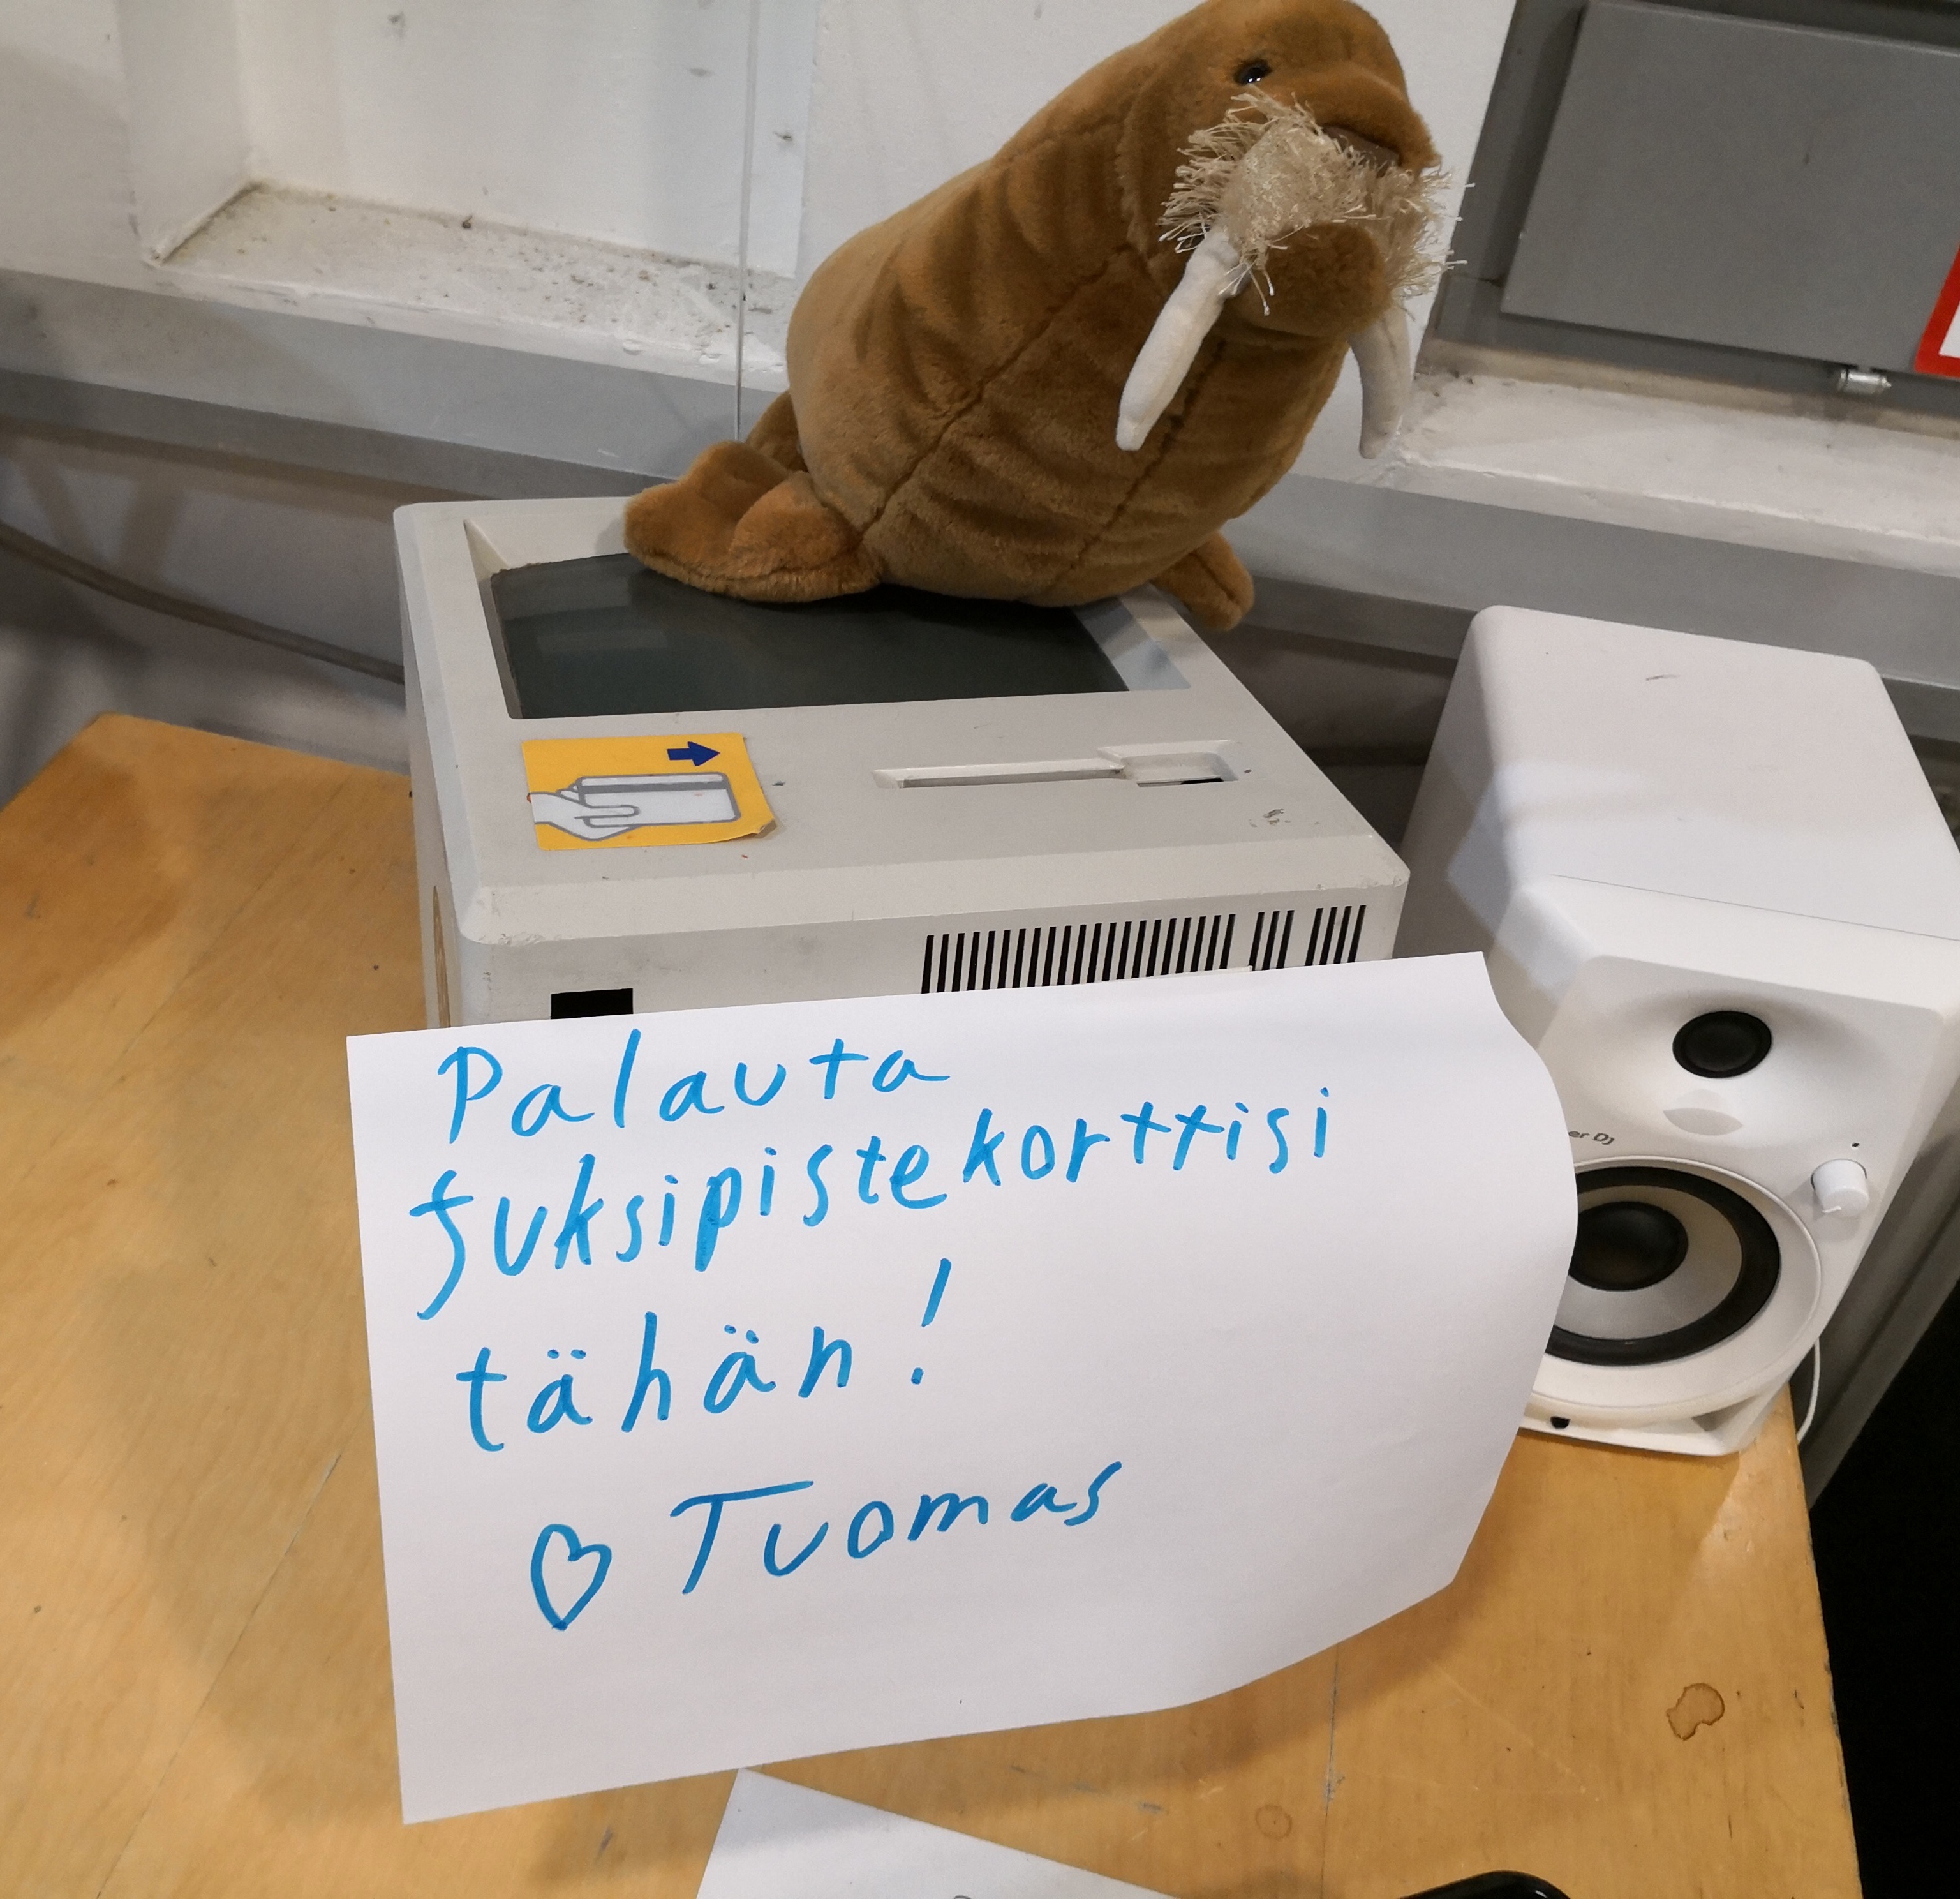 Palauta
fuksipistekorttisi
tähän!
♡ Tuomas
er DJ